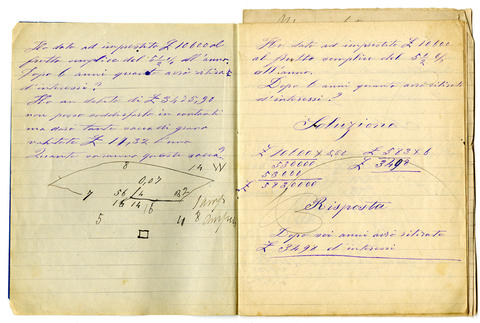 Ho dato ad imprestito £ 10600 al
frutto semplice del 5 ½ % all'anno.
Dopo 6 anni quanto avrò ritirato
d'interessi?
Ho un debito di £ 3475,20
non posso soddisfarlo in contanti
ma darò tanti sacchi di grano
valutato £ 19,32 l'uno.
Quanti saranno questi sacchi?
8
14 W
0,07
7
56 4
18 14 16
5
4
8
Ho dato ad imprestito £ 10600
al frutto semplice del 5 ½ %
all'anno.
Dopo 6 anni quanto avrò ritirato
d'interessi?
Soluzione
£ 10600 × 5,50
£ 583 × 6
530000
£ 3498
53000
£ 5830000
Risposta
Dopo sei anni avrò ritirato
£ 3498 d'interessi